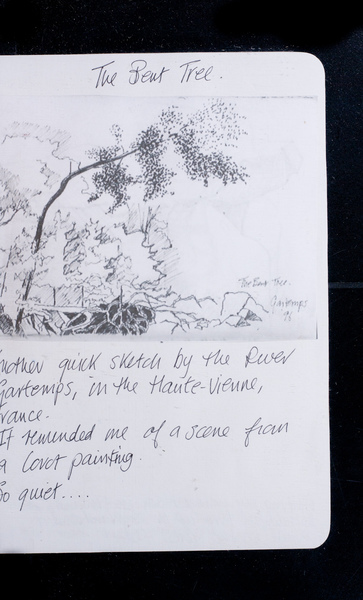 The Bent Tree.
The Bent Tree.
Gartemps
nother quick sketch by the River
Gartemps, in the Haute-Vienne,
rance.
It reminded me of a scene from
a Corot painting.
So quiet....